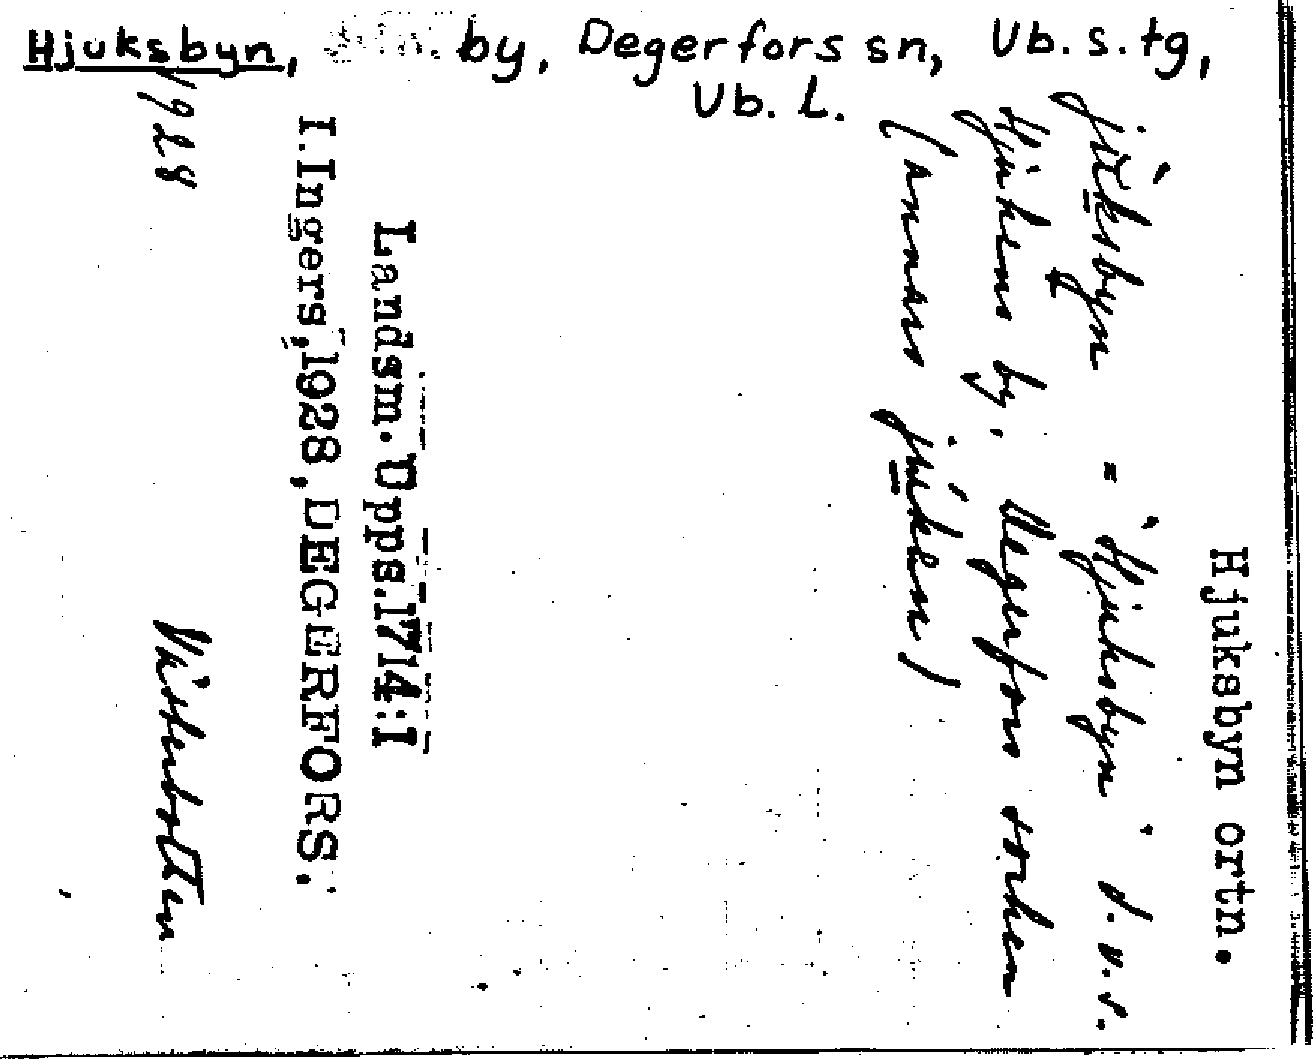 Hjuksbyn, by, Degerfors sn, Vb.s.tg,
Vb. L.
Hjuksbyn ortn.
júksbyn = "Hjuksbyn" d.v.s.
Hjukens by, Degerfors socken
(annars júken)
Landsm. Upps.1714:1
I.Ingers,1928, DEGERFORS.
1928 Västerbotten